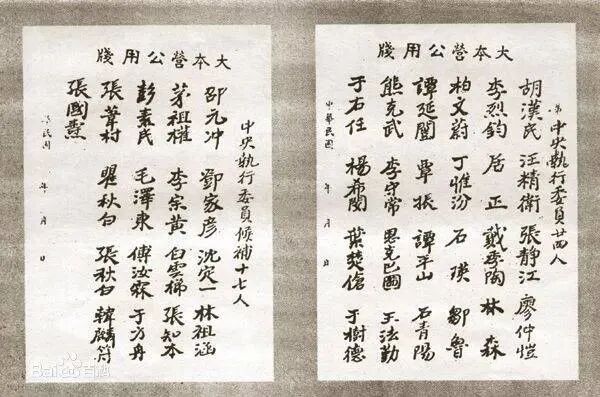 大本營公用牋
第
中央執行委員廿四人
胡漢民 汪精衛 張靜江 廖仲愷
李烈鈞 居正 戴季陶 林森
柏文蔚 丁惟汾 石瑛 鄒魯
譚延闓 覃振 譚平山 石青陽
熊克武 李守常 恩克巴圖 王法勤
于右任 楊希閔 葉楚傖 于樹德
中華民國 年 月 日
大本營公用牋
中央執行委員候補十七人
邵元冲 鄧家彥 沈定一 林祖涵
茅祖權 李宗黃 白雲梯 張知本
彭素民 毛澤東 傅汝霖 于方舟
張葦村 瞿秋白 張秋白 韓麟符
張國燾
民國 年 月 日
Bai百科